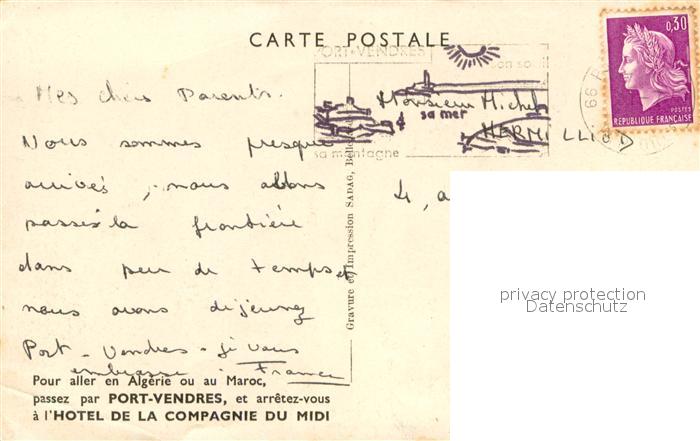 CARTE POSTALE
PORT-VENDRES
son soleil
sa mer
sa montagne
0,30
POSTES
REPUBLIQUE FRANÇAISE
66 P
Mes chers Parents.
Nous sommes presque
arrivés, nous allons
passer la frontière
dans peu de temps et
nous avons déjeuney
Port-Vendres - je vous
embrasse. France
Monsieur Michel
HERMILLIOD
4, a
Gravure et Impression SADAG, Belle
privacy protection
Datenschutz
Pour aller en Algérie ou au Maroc,
passez par PORT-VENDRES, et arrêtez-vous
à l'HOTEL DE LA COMPAGNIE DU MIDI